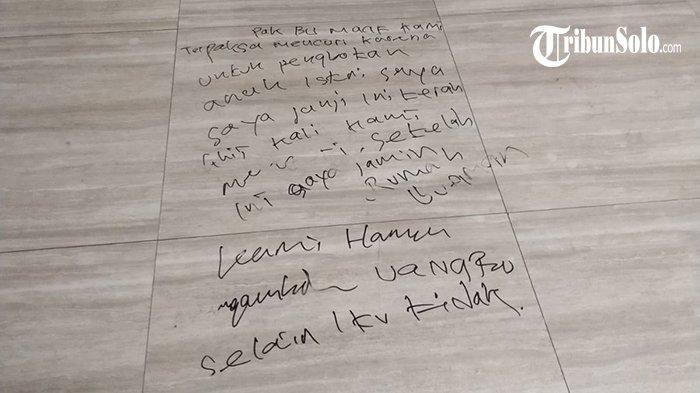 TribunSolo.com
Pak Bu Maaf Kami
Terpaksa mencuri karena
untuk pengobatan
anak istri saya
saya janji ini terah
Kali Kami
setelah
ini saya jamin
Rumah
Kami Hanya
uang
selain itu tidak.